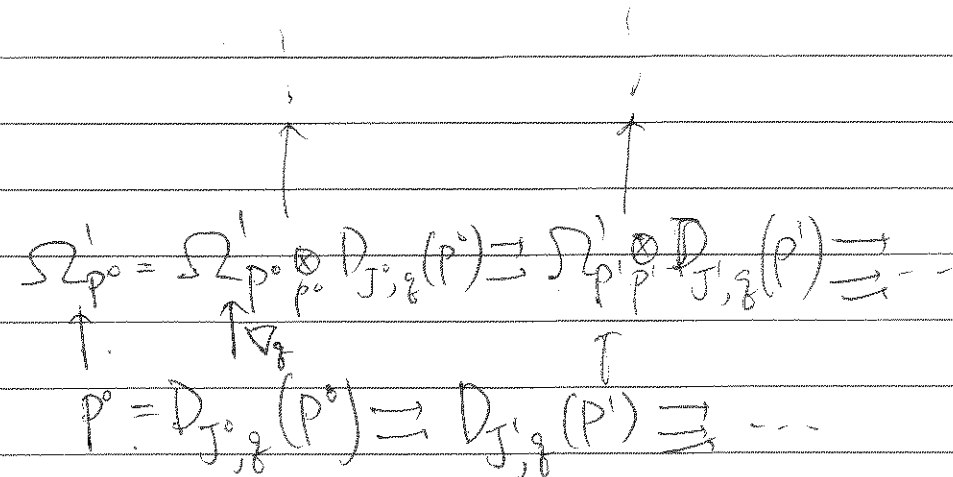 Ω¹_{P⁰} = Ω¹_{P⁰} ⊗_{P⁰} D_{J⁰,q}(P⁰) ⇉ Ω¹_{P¹} ⊗_{P¹} D_{J¹,q}(P¹) ⇉ ...
↑ ↑ ∇_q ↑
P⁰ = D_{J⁰,q}(P⁰) ⇉ D_{J¹,q}(P¹) ⇉ ...